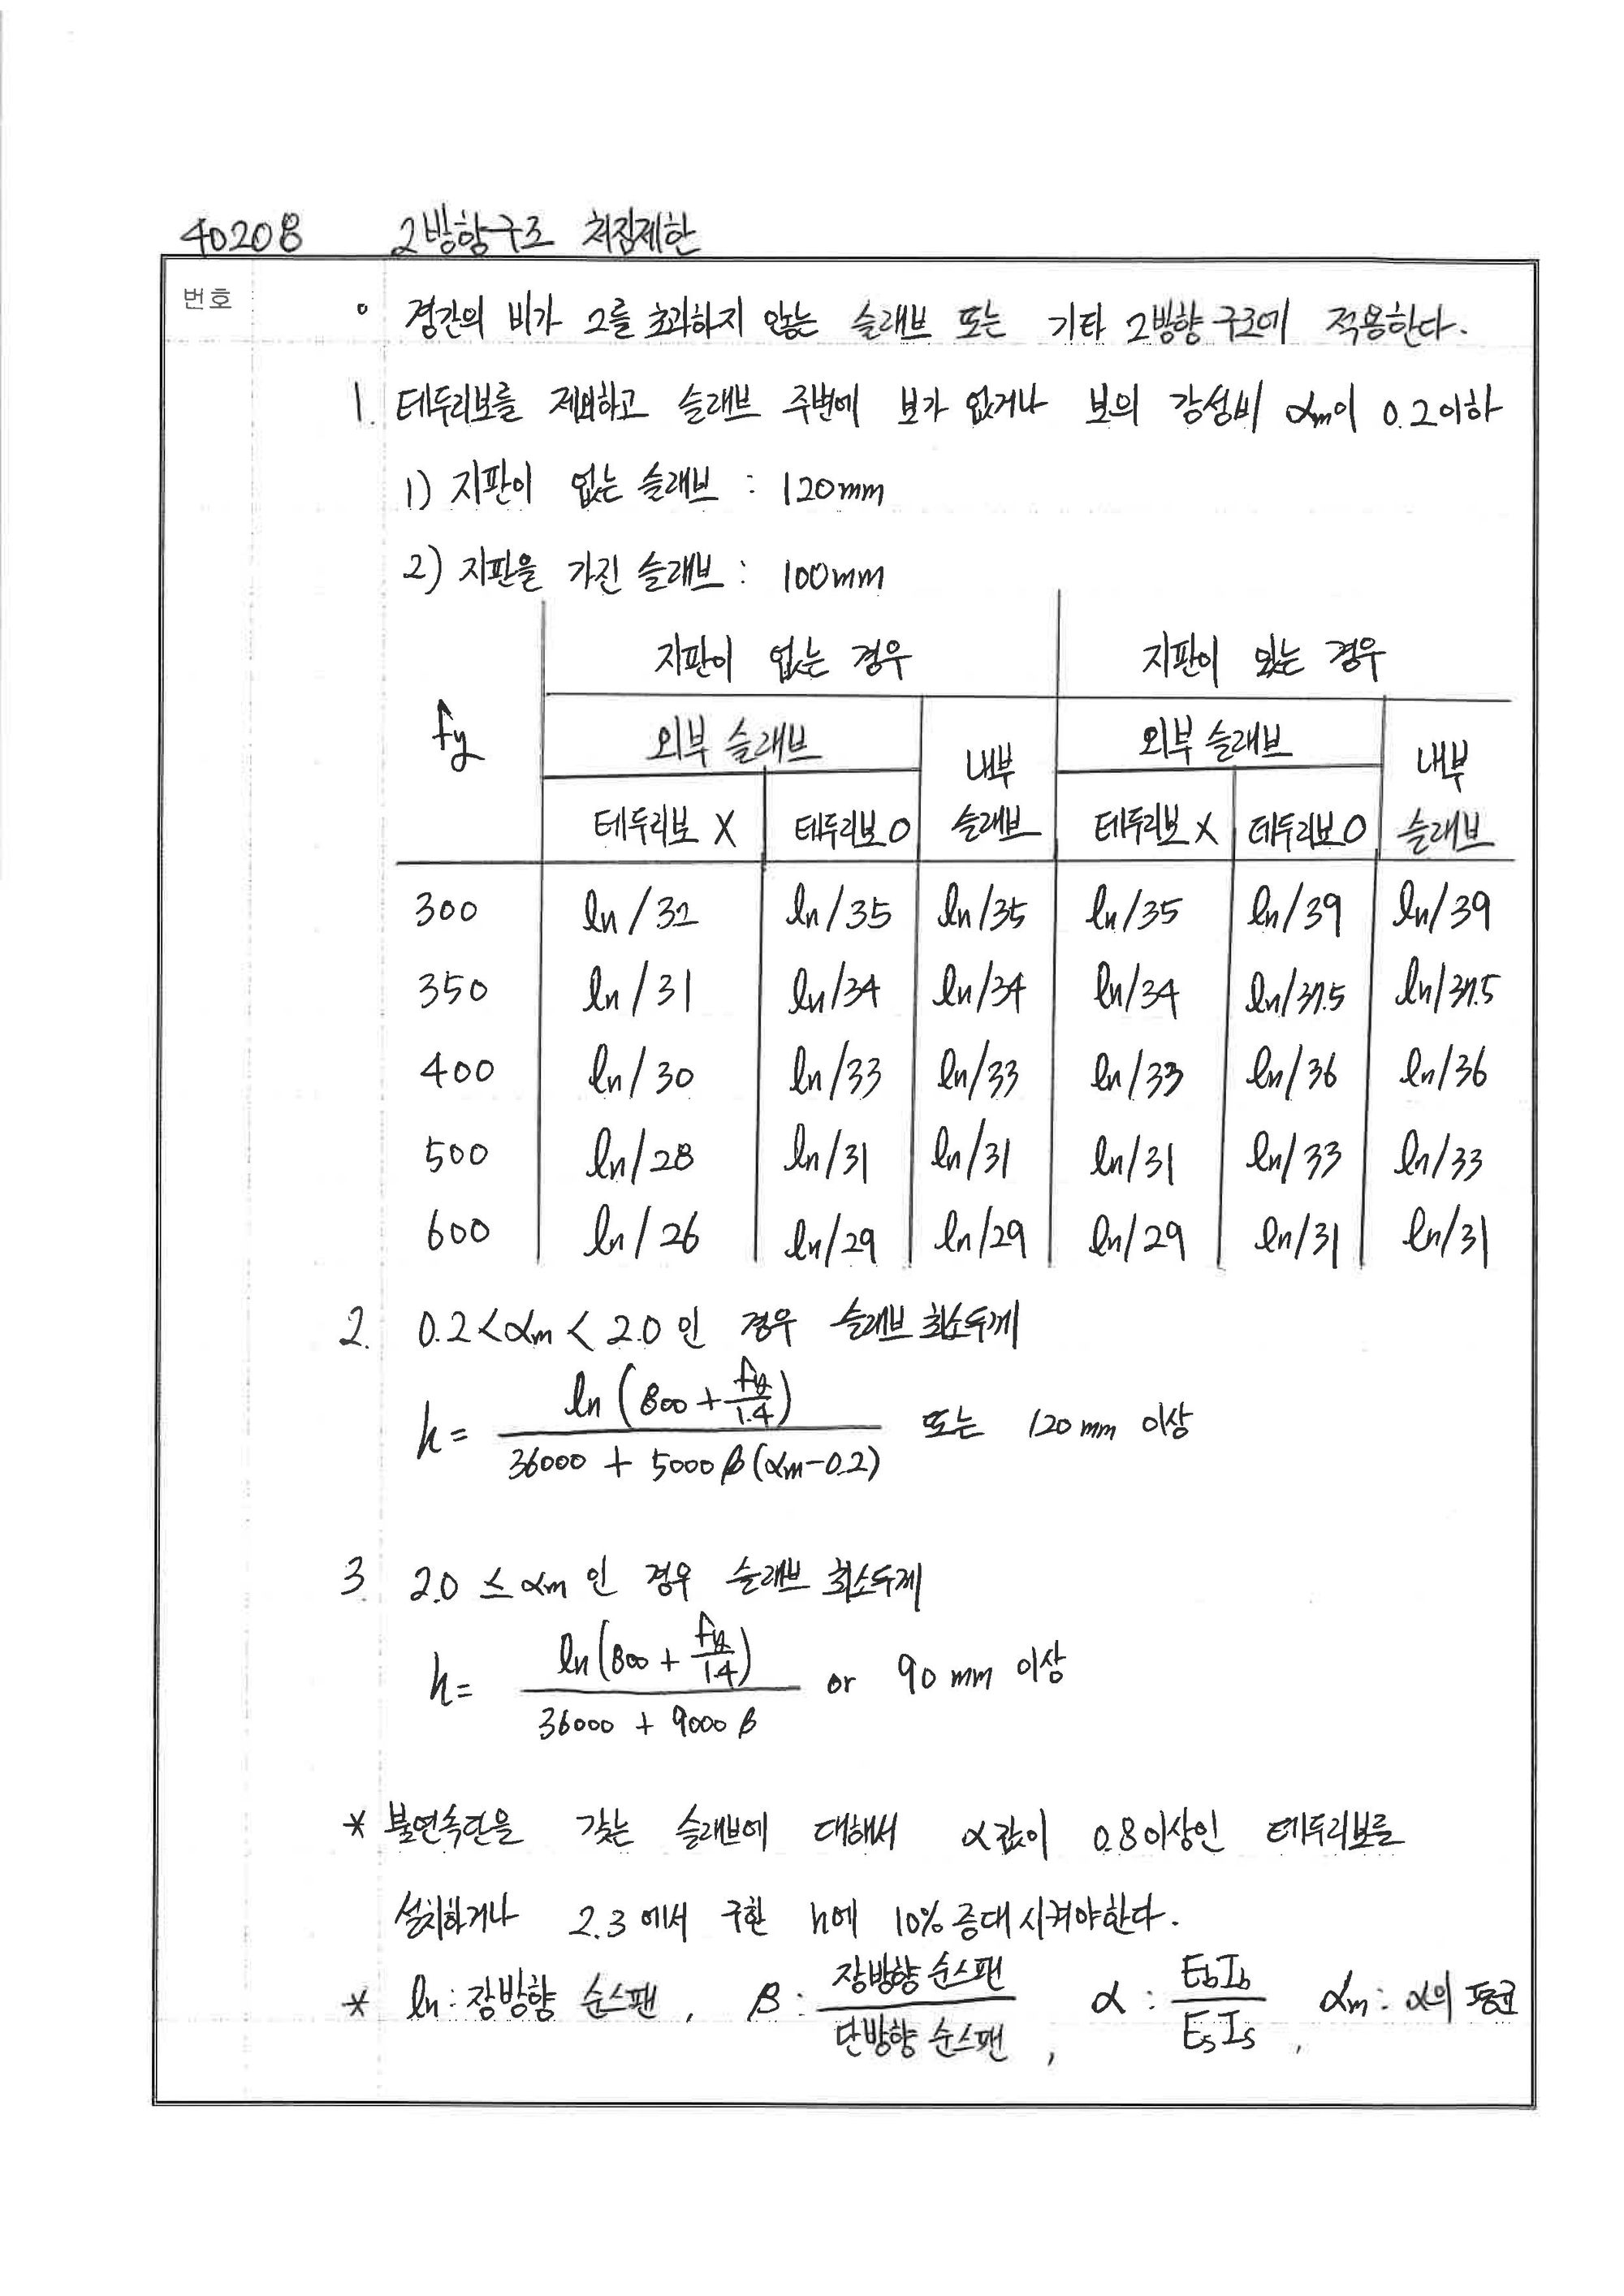 40208 2방향구조 처짐제한
번호
° 경간의 비가 2를 초과하지 않는 슬래브 또는 기타 2방향 구조에 적용한다.
1. 테두리보를 제외하고 슬래브 주변에 보가 없거나 보의 강성비 αm이 0.2이하
1) 지판이 없는 슬래브 : 120mm
2) 지판을 가진 슬래브 : 100mm
fy 지판이 없는 경우 지판이 있는 경우
외부 슬래브 내부 슬래브 외부 슬래브 내부 슬래브
테두리보 X 테두리보 O 테두리보 X 테두리보 O
300 ln/32 ln/35 ln/35 ln/35 ln/39 ln/39
350 ln/31 ln/34 ln/34 ln/34 ln/37.5 ln/37.5
400 ln/30 ln/33 ln/33 ln/33 ln/36 ln/36
500 ln/28 ln/31 ln/31 ln/31 ln/33 ln/33
600 ln/26 ln/29 ln/29 ln/29 ln/31 ln/31
2. 0.2 < αm < 2.0 인 경우 슬래브 최소두께
h = ln(800 + fy/1.4) / 36000 + 5000β(αm-0.2) 또는 120mm 이상
3 2.0 ≤ αm 인 경우 슬래브 최소두께
h = ln(800 + fy/1.4) / 36000 + 9000β or 90mm 이상
* 불연속단을 갖는 슬래브에 대해서 α값이 0.8이상인 테두리보를
설치하거나 2.3에서 구한 h에 10% 증대시켜야한다.
* ln : 장방향 순스팬, β : 장방향 순스팬 / 단방향 순스팬, α : EbIb / EsIs, αm : α의 평균